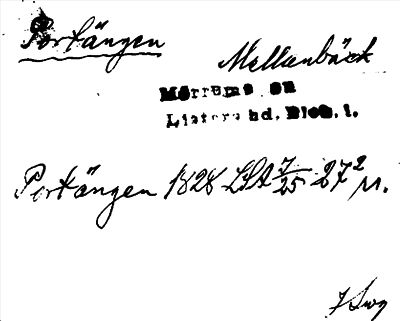 Portängen
Mellanbäck
Mörrums sn
Listers hd. Blek. l.
Portängen 1828 LSA 7/25 27² M.